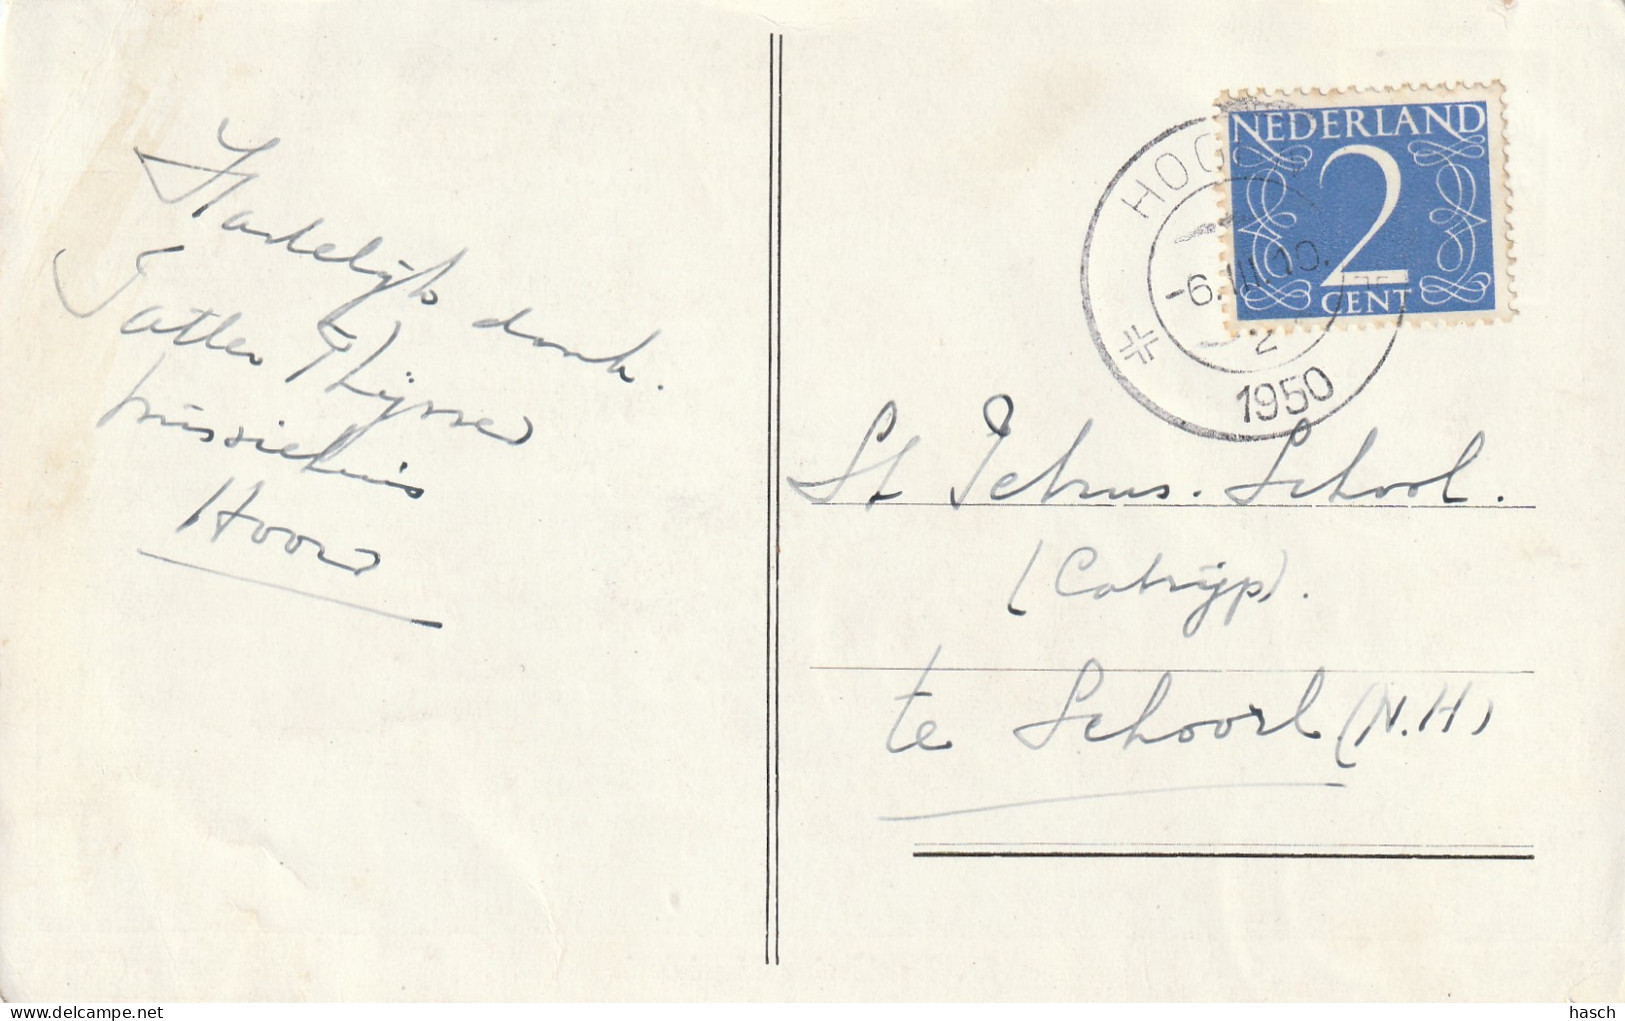 Hartelijk dank.
Pater Thijssen
missiehuis
Hoorn
NEDERLAND
2
CENT
HOO
-6.III.10.
2
1950
St Petrus. School.
(Catrijp).
te Schoorl (N.H)
delcampe.net
hasch